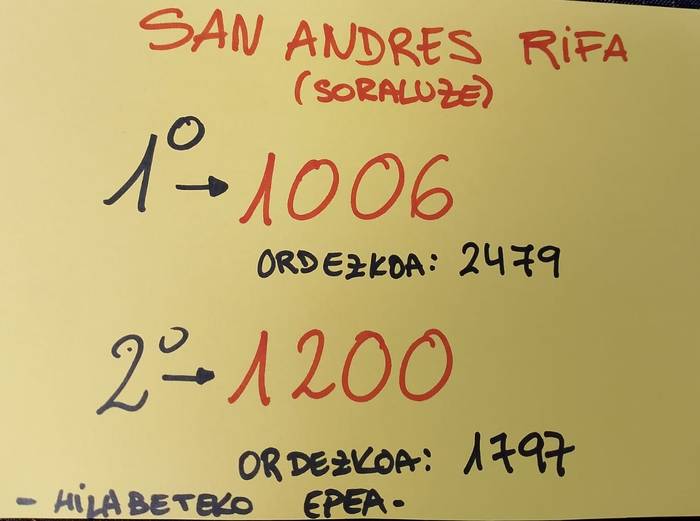 SAN ANDRES RIFA
(SORALUZE)
1º → 1006
ORDEZKOA: 2479
2º → 1200
ORDEZKOA: 1797
- HILABETEKO EPEA-